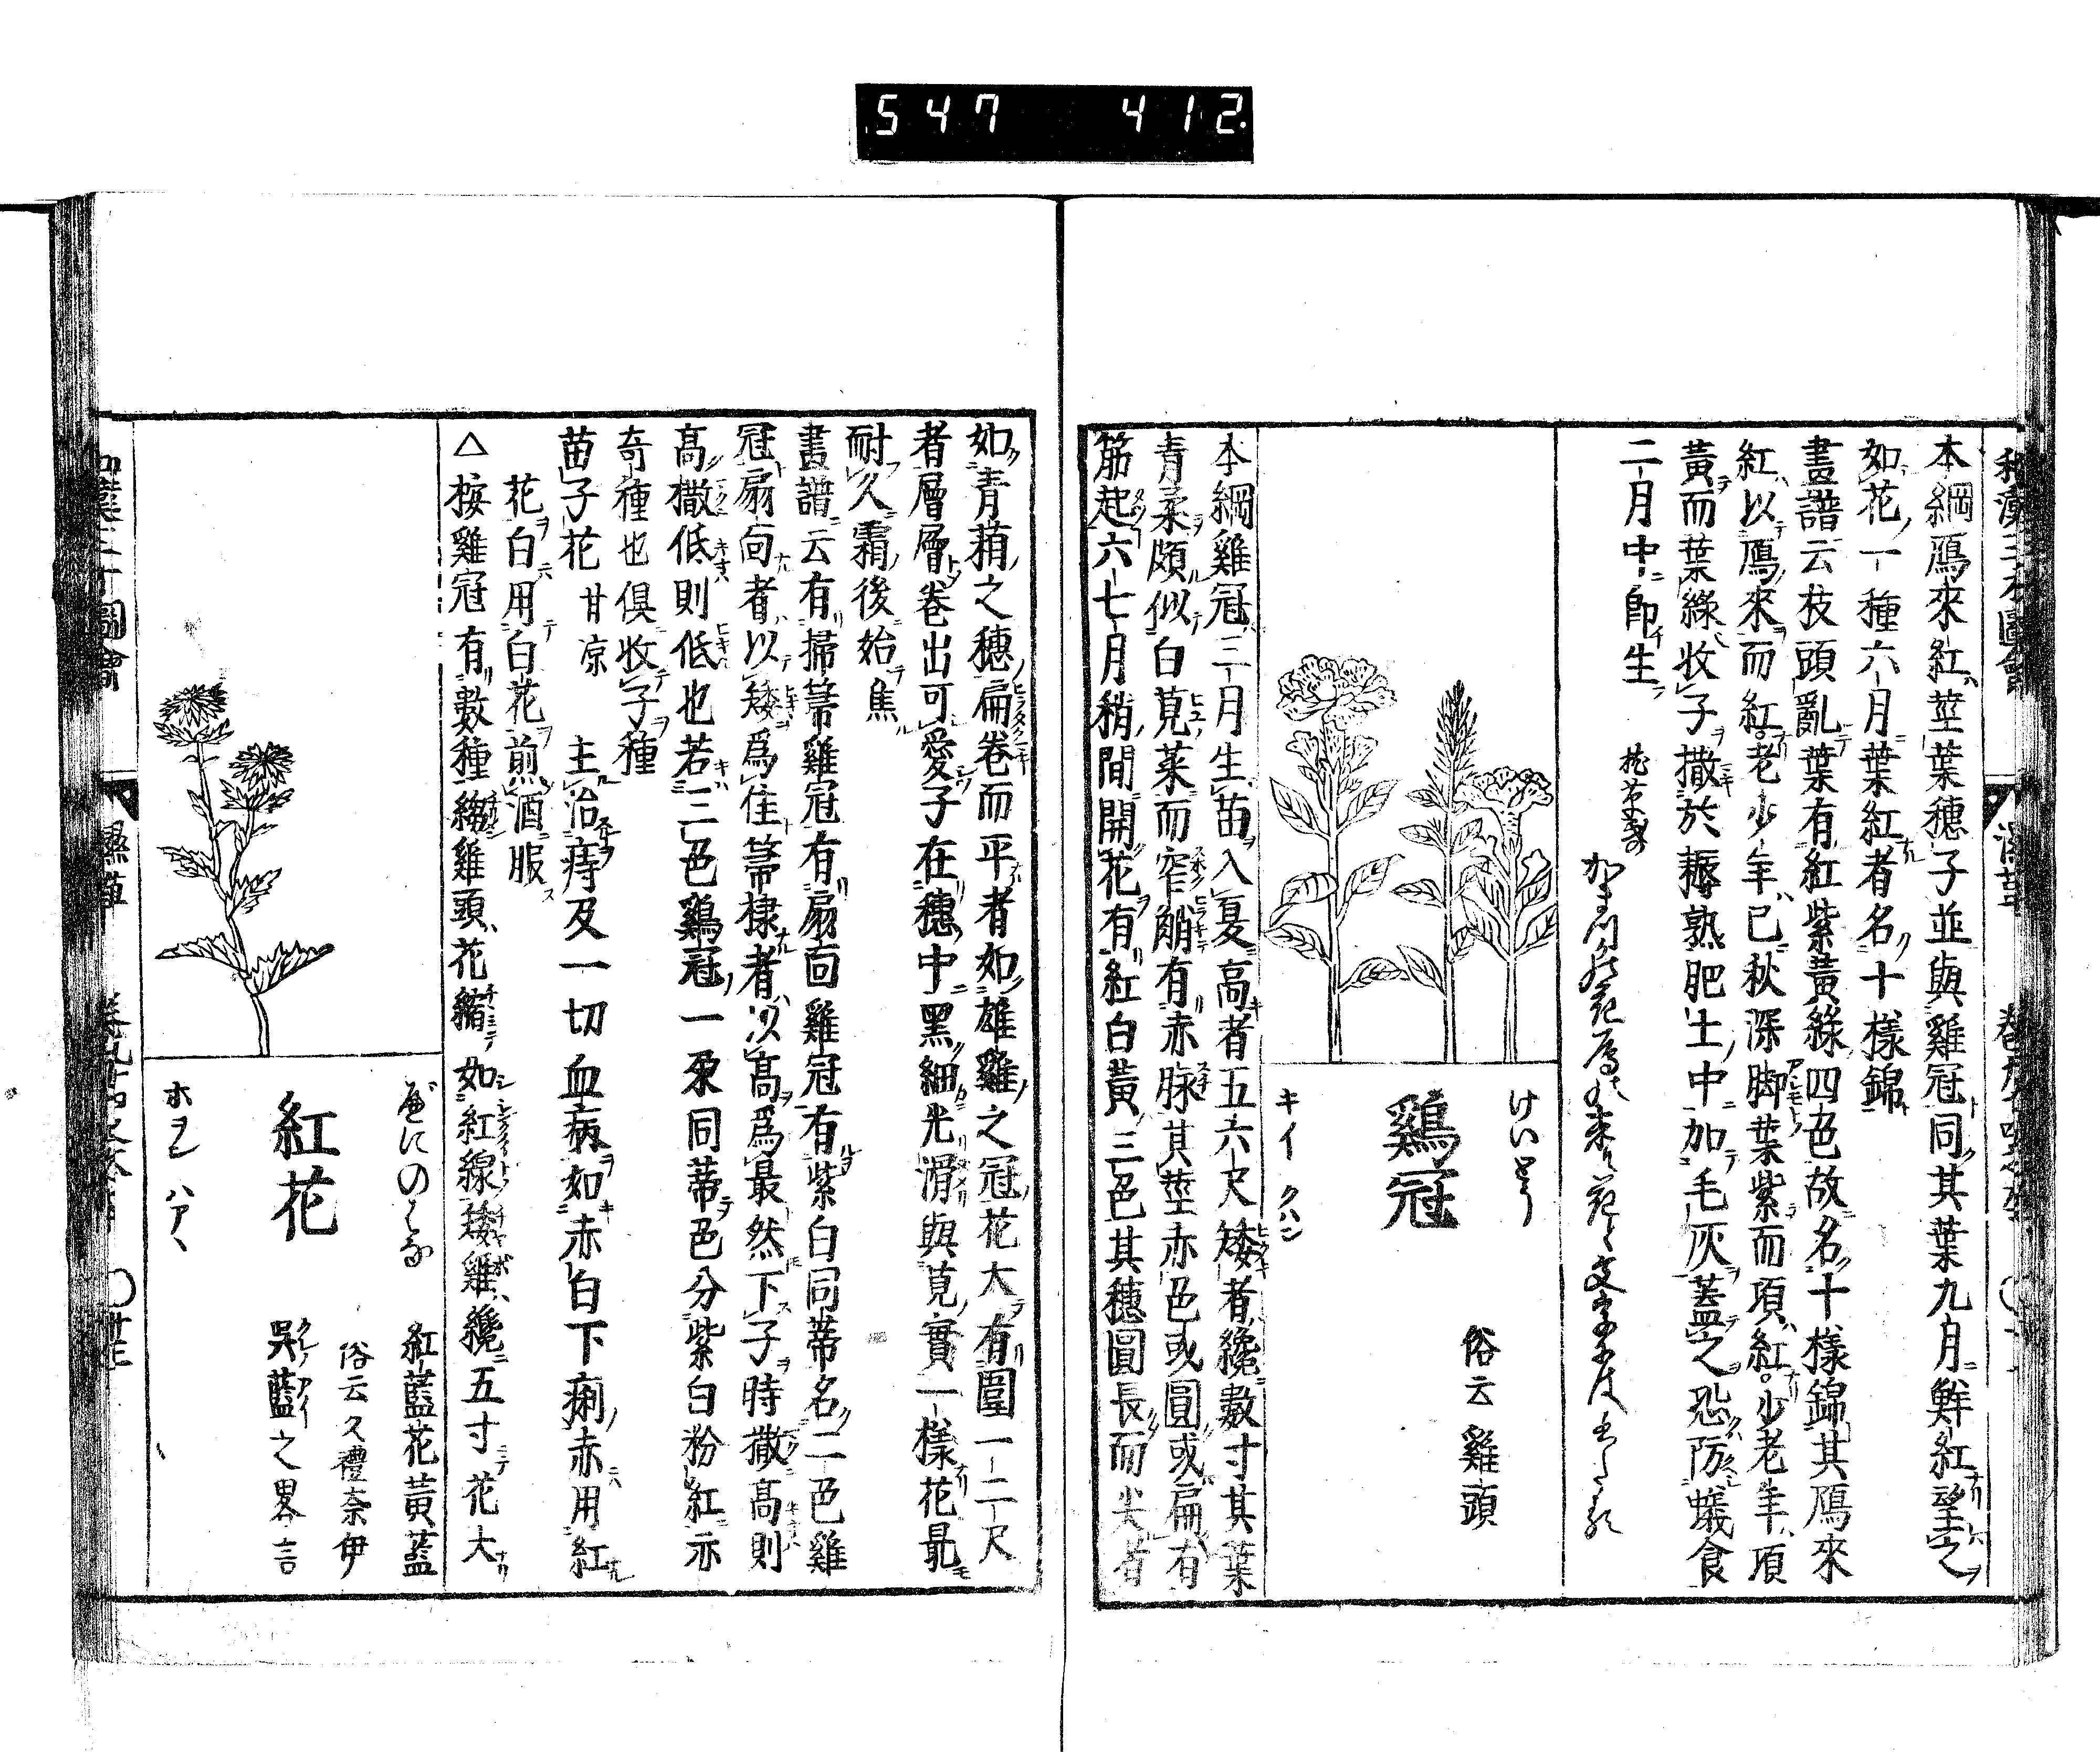 547 412
和漢三才圖會 濕草
本綱鴈來紅莖葉穗子並與雞冠同其葉九月鮮紅望之
如花一種六月葉紅者名十樣錦
畫譜云枝頭亂葉有紅紫黃綠四色故名十樣錦其鴈來
紅以鴈來而紅老少年已秋深脚葉紫而項紅少老年項
黃而葉綠收子撒於耨熟肥土中加毛灰蓋之恐防蟻食
二月中卽生
けいとう
鷄冠
キイ クハン
俗云雞頭
本綱雞冠三月生苗入夏高者五六尺矮者纔數寸其葉
青柔頗似白莧菜而窄䚹有赤脉其莖赤色或圓或扁有
筋起六七月稍間開花有紅白黃三色其穗圓長而尖者
如青葙之穗扁卷而平者如雄雞之冠花大有圍一二尺
者層層卷出可愛子在穗中黑細光滑與莧實一樣花最
耐久霜後始焦
畫譜云有掃箒雞冠有扇面雞冠有紫白同蒂名二色雞
冠扇面者以矮爲佳箒棣者以高爲最然下子時撒高則
高撒低則低也若三色鷄冠一朶同蒂色分紫白粉紅亦
奇種也俱收子種
苗子花 甘凉 主治痔及一切血病如赤白下痢赤用紅
花白用白花煎酒服
△按雞冠有數種縐雞頭花縮如紅線矮雞纔五寸花大
べにのはな
紅花
ホヲン ハアヽ
紅藍花 黃藍
俗云久禮奈伊
呉藍之畧言
和漢三才圖會 濕草